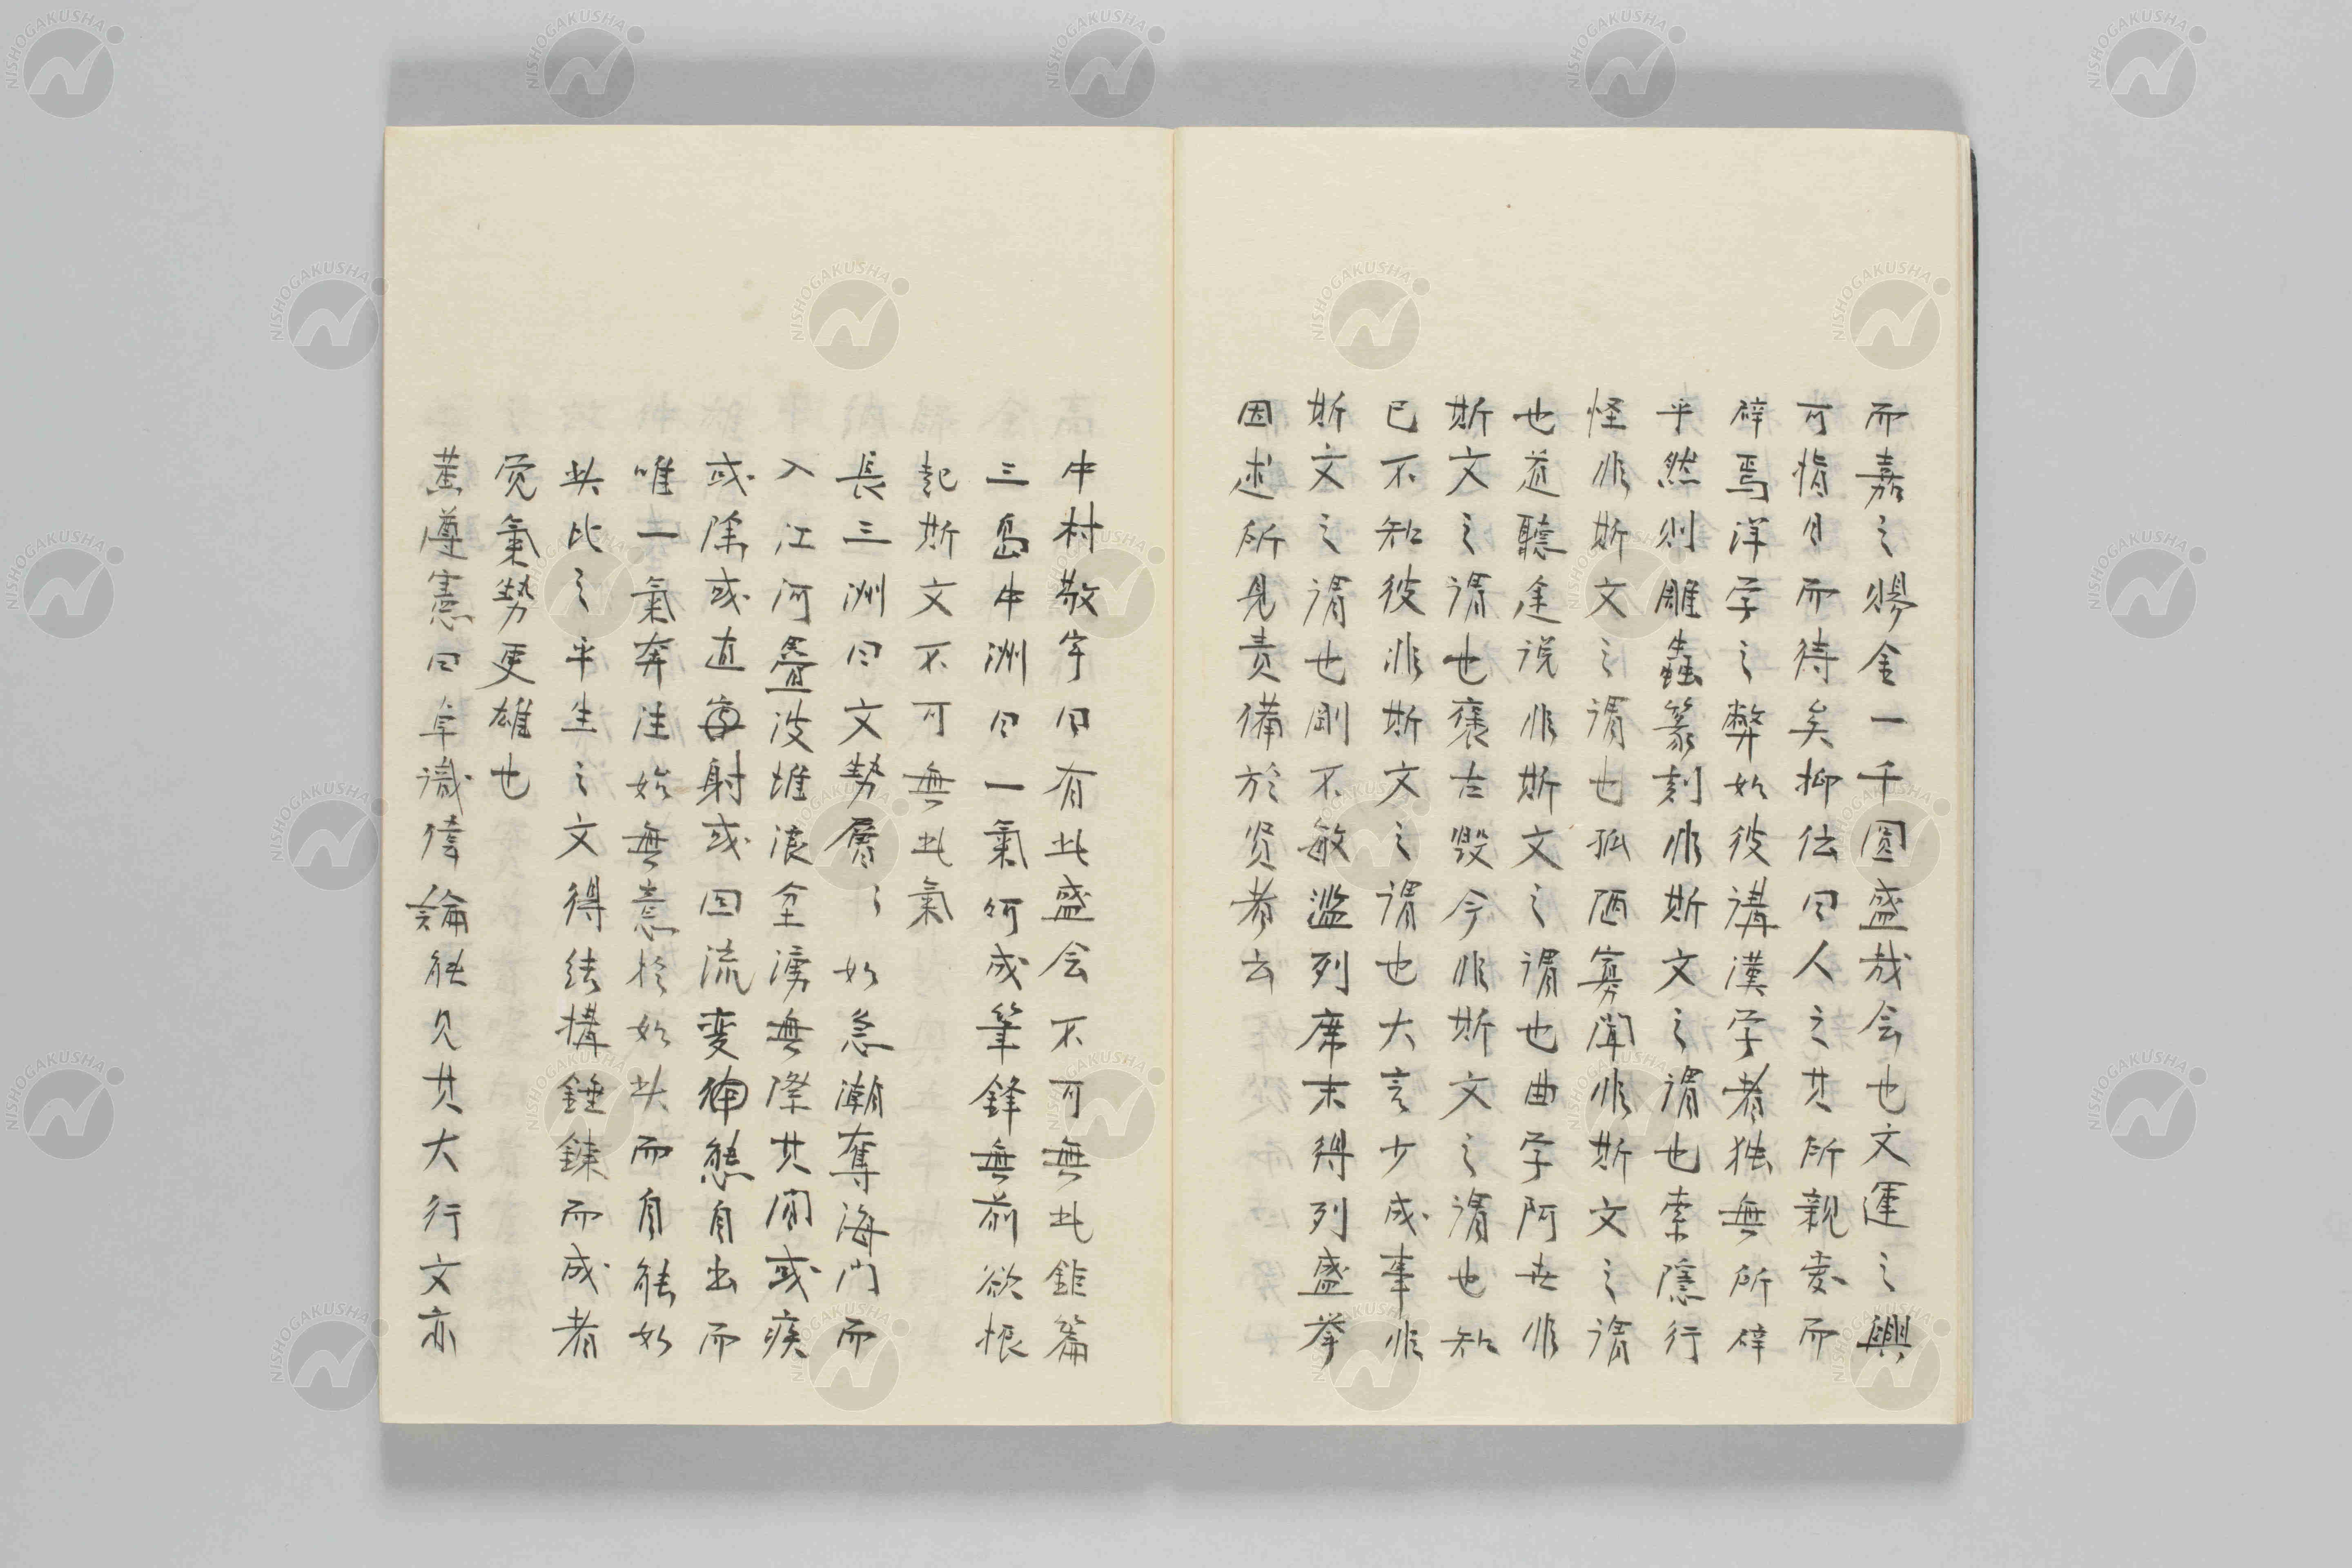 而嘉之賜金一千圓盛哉会也文運之興
可指日而待矣抑伝曰人之其所親愛而
辟焉洋学之弊如彼講漢学者独無所辟
乎然則雕蟲篆刻非斯文之謂也索隠行
怪非斯文之謂也孤陋寡聞非斯文之謂
也道聴途説非斯文之謂也曲学阿世非
斯文之謂也褒古毀今非斯文之謂也知
已不知彼非斯文之謂也大言少成事非
斯文之謂也剛不敏濫列席末得列盛挙
因述所見責備於賢者云
中村敬宇曰有此盛会不可無此鉅篇
三島中洲曰一氣呵成筆鋒無前欲振
起斯文不可無此氣
長三洲曰文勢層々如急潮奪海門而
入江河疊波堆浪坌湧無際其間或疾
或徐或直射或回流変神態自出而
唯一氣奔注始無意於如此而自能如
此比之平生之文得結構錘錬而成者
覚氣勢更雄也
黄遵憲曰卓識偉論能見其大行文亦
NISHOGAKUSHA